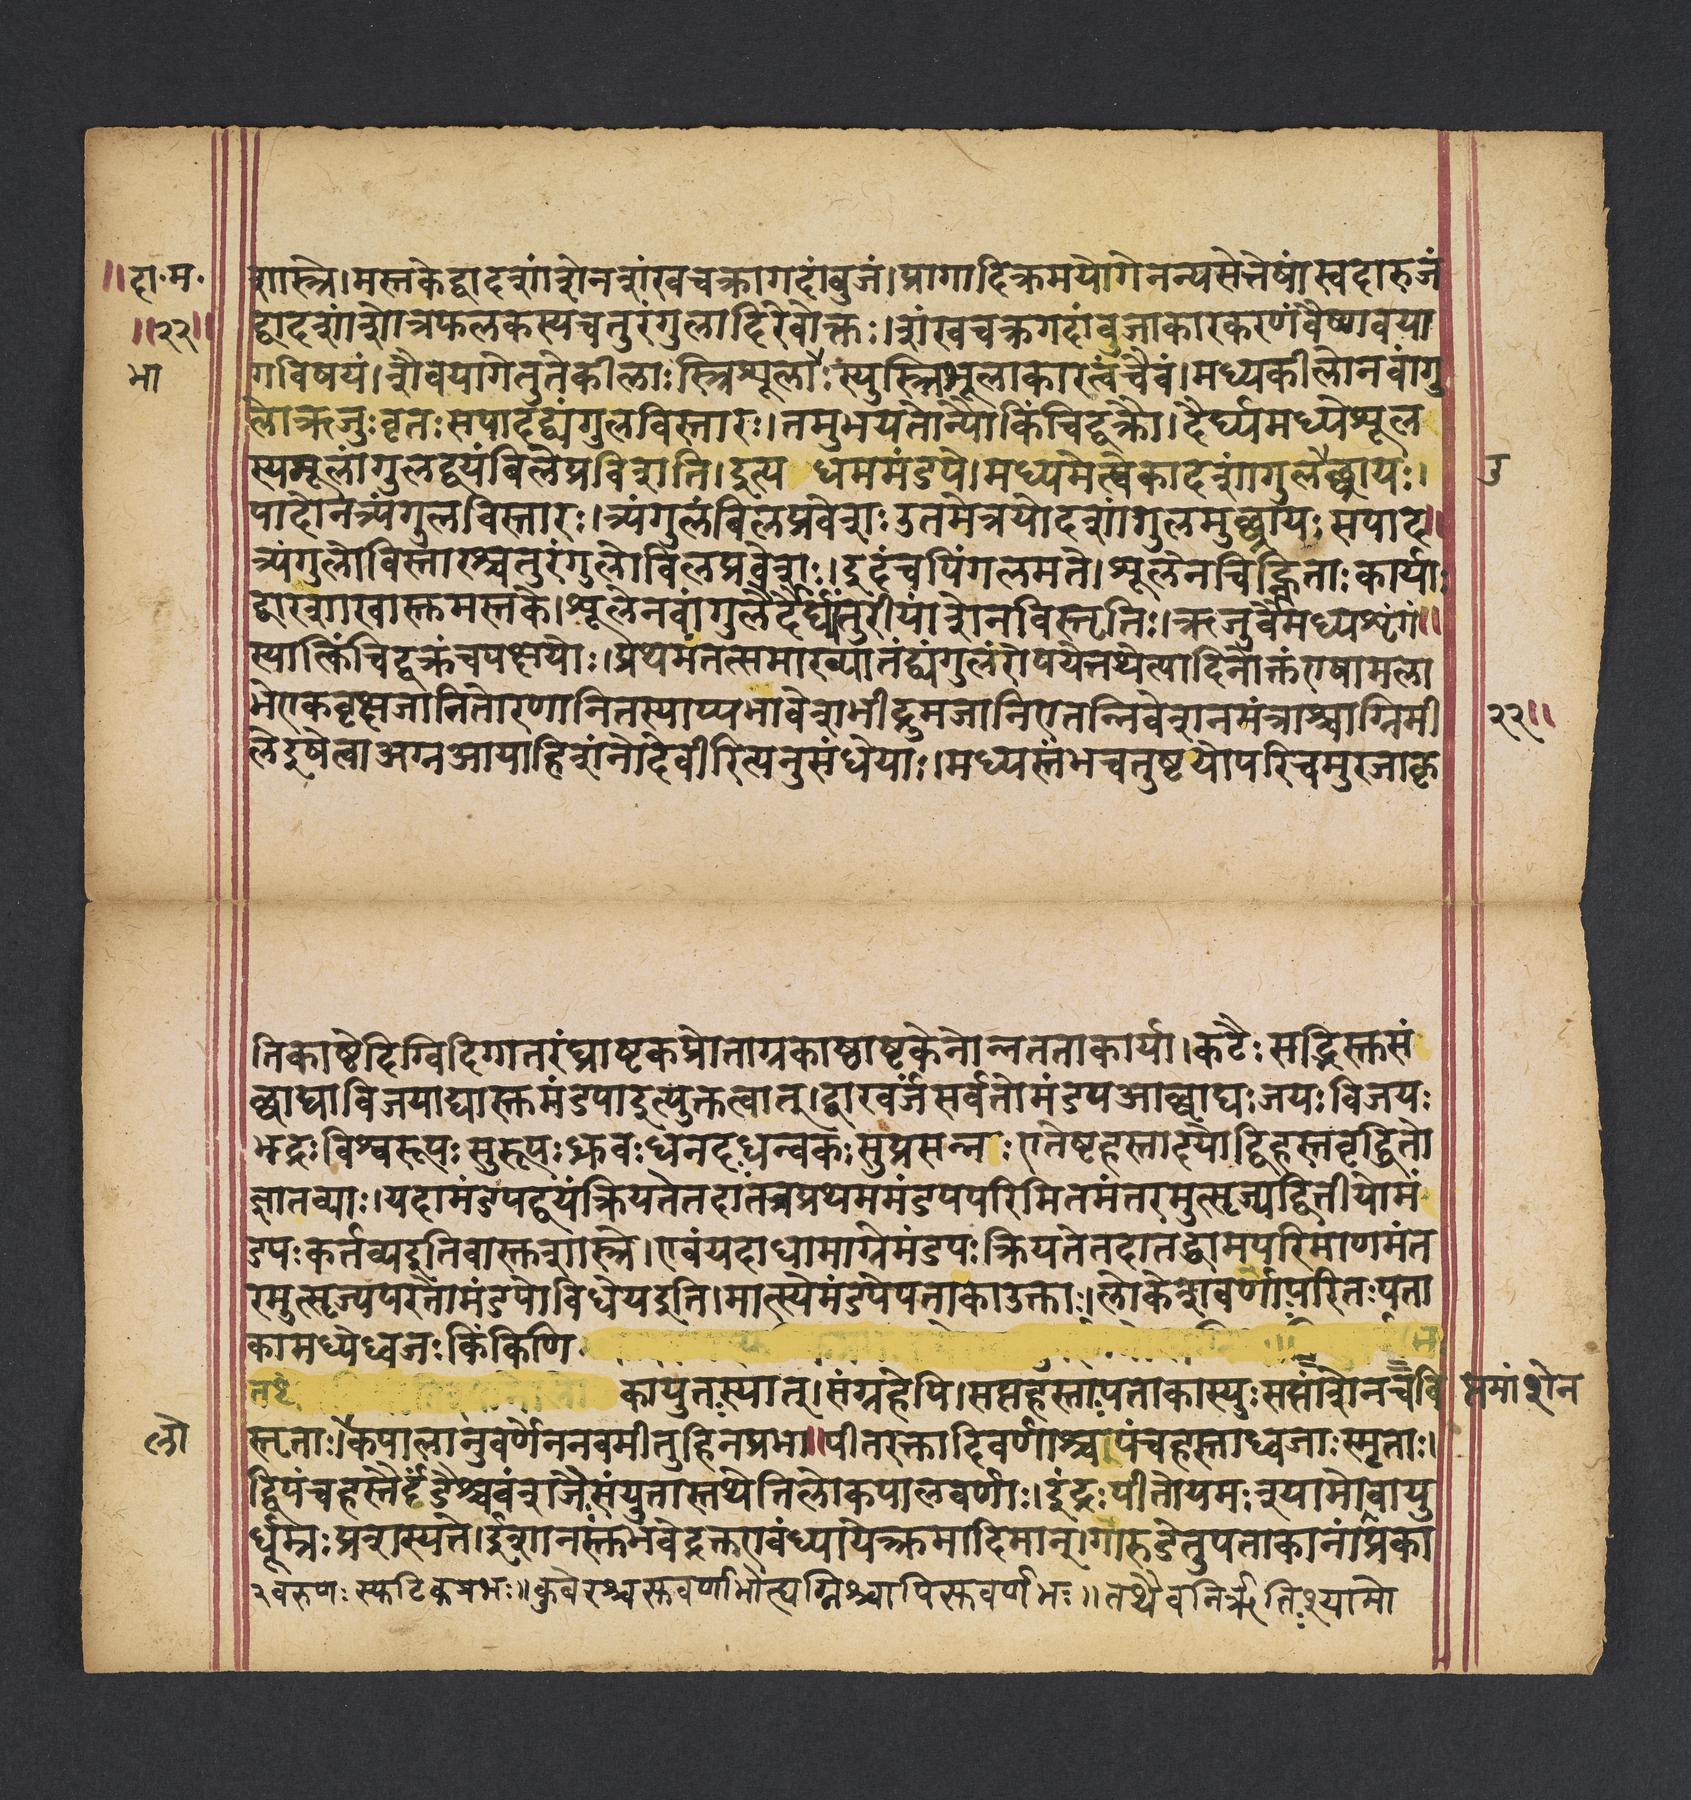 ॥दा॰म॰
॥२२॥
भा
शास्त्रे।मस्तकेद्वादशांशेनशंखचक्रागदांबुजं।प्रागादिक्रमयोगेनन्यसेत्तेषांस्वदारुजं
द्वादशांशोत्रफलकस्यचतुरंगुलादिरेवोक्तः।शंखचक्रगदांबुजाकारकरणंवैष्णवया
गविषयं।शैवेयागेतुतेकीलाःस्त्रिशूलाःस्युस्त्रिशूलाकारत्वंचैवं।मध्यकीलोनवांगु
लोऋजुःवृतःसपादद्व्यंगुलविस्तारः।तमुभयतोन्यौकिंचिद्वक्रौ।दैर्घ्यमध्येशूल
स्यमूलांगुलद्वयंबिलेप्रविशति।इत्य धममंडपे।मध्यमेत्वेकादशांगुलोच्छ्रायः।
उ
पादोनत्र्यंगुलविस्तारः।त्र्यंगुलंबिलप्रवेशःउतमेत्रयोदशांगुलमुच्छ्रायःसपाद॥
त्र्यंगुलोविस्तारश्चतुरंगुलोबिलप्रवेशः।इदंचपिंगलमते।शूलेनचिह्निताःकार्याः
द्वारशाखास्तमस्तके।शूलेनवांगुलैर्दैर्घ्यंतुरीयांशेनविस्तृतिः।ऋजुर्वैमध्यशृंगं॥
स्यात्किंचिद्वक्रंचपक्षयोः।प्रथमंतत्समाख्यातंद्व्यंगुलंरोपयेत्तथेत्यादिनोक्तंएषामला
भेएकवृक्षजानितोरणानितस्याप्यभावेशमीद्रुमजानिएतन्निवेशनमंत्राश्चाग्निमी
२२॥
लेइषेत्वाअग्नआयाहिशंनोदेवीरित्यनुसंधेयाः।मध्यस्तंभचतुष्टयोपरिचमुरजाकृ
तिकाष्टेदिग्विदिगातरंघ्राष्टकप्रोताग्रकाष्ठाष्टकेनोन्नतताकार्या।कटैःसद्भिस्तसं
छाद्याविजयाद्यास्तमंडपाइत्युक्तत्वात्।द्वारवर्जंसर्वतोमंडपआच्छाद्यःजयःविजयः
भद्रःविश्वरूपःसुरूपःध्रुवःधनदःधन्वकःसुप्रसन्नःएतेष्टहस्तादयोद्विहस्तवृद्धितो
ज्ञातव्याः।यदामंडपद्वयंक्रियतेतदातत्रप्रथममंडपपरिमितमंतरमुत्सृज्यद्वितीयोमं
डपःकर्तव्यइतिवास्तशास्त्रे।एवंयदाधामाग्रेमंडपःक्रियतेतदातद्धामपरिमाणमंत
रमुत्सृज्यपरतोमंडपोविधेयइति।मात्स्येमंडपेपताकाउक्ताः।लोकेशवर्णाःपरितःपता
कामध्येध्वजःकिंकिणि
कायुतःस्यात्।संग्रहेपि।सप्तहस्ताःपताकास्युःसप्तांशेनचवि
प्तमांशेन
लो
स्तृताः।कपालानुवर्णेननवमीतुहिनप्रभा॥पीतरक्तादिवर्णाश्चपंचहस्ताध्वजाःस्मृताः।
द्विपंचहस्तैर्दंडैश्चवंशजैःसंयुतास्तथेतिलोकपालवर्णाः।इंद्रःपीतोयमःश्यामोवायु
र्धूम्रःप्रशस्यते।ईशानस्तभवेद्रक्तएवंध्यायेत्क्रमादिमान्।गारुडेतुपताकानांप्रका
२वरुणःस्फटिकप्रभः॥कुबेरश्चस्तवर्णाभोत्यग्निश्चापिस्तवर्णभः॥तथैवनिर्ऋतिःश्यामो